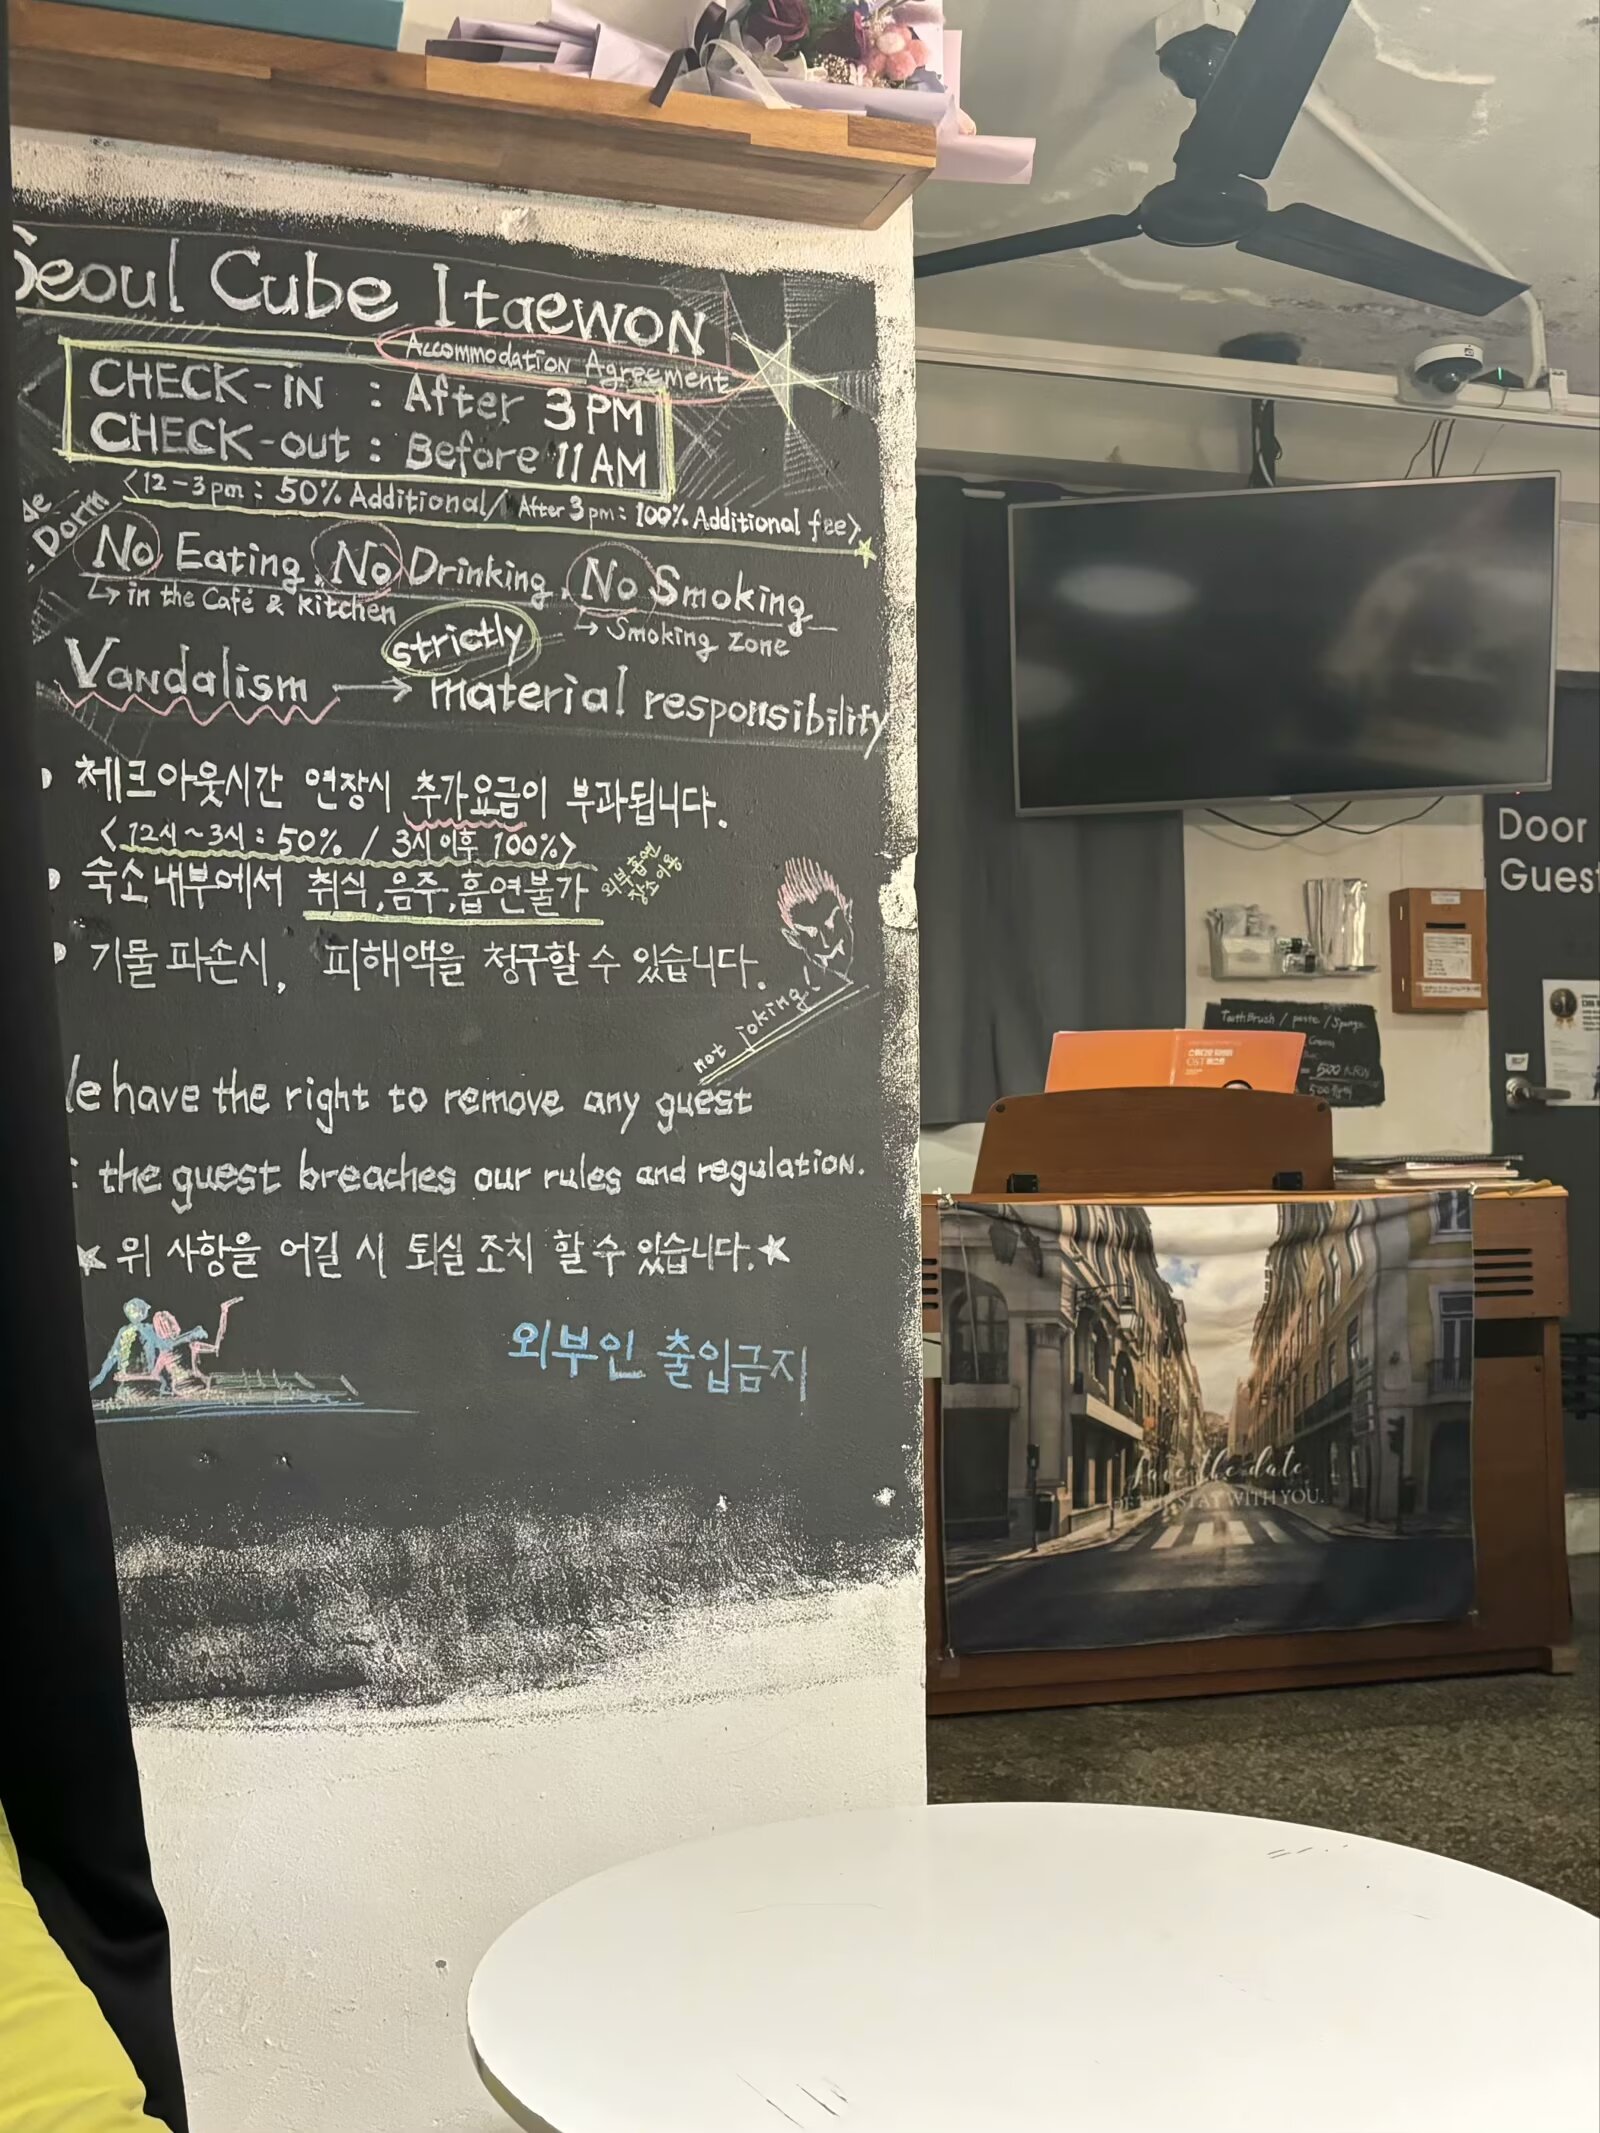 Seoul Cube ItaewoN
Accommodation Agreement
CHECK-iN : After 3 PM
CHECK-out : Before 11 AM
<12-3pm : 50% Additional / After 3pm : 100% Additional fee>
Dorm
No Eating, No Drinking, No Smoking
↳ in the Café & Kitchen
↳ Smoking zone
strictly
Vandalism → material responsibility
체크아웃시간 연장시 추가요금이 부과됩니다.
<12시~3시 : 50% / 3시 이후 100%>
숙소내부에서 취식,음주,흡연불가
외부흡연
장소이용
기물파손시, 피해액을 청구할 수 있습니다.
not joking!
e have the right to remove any guest
the guest breaches our rules and regulation.
★ 위 사항을 어길 시 퇴실 조치 할 수 있습니다.★
외부인 출입금지
Door
Guest
ToothBrush / paste / Sponge
500 KRW
OST
Save the date
STAY WITH YOU.